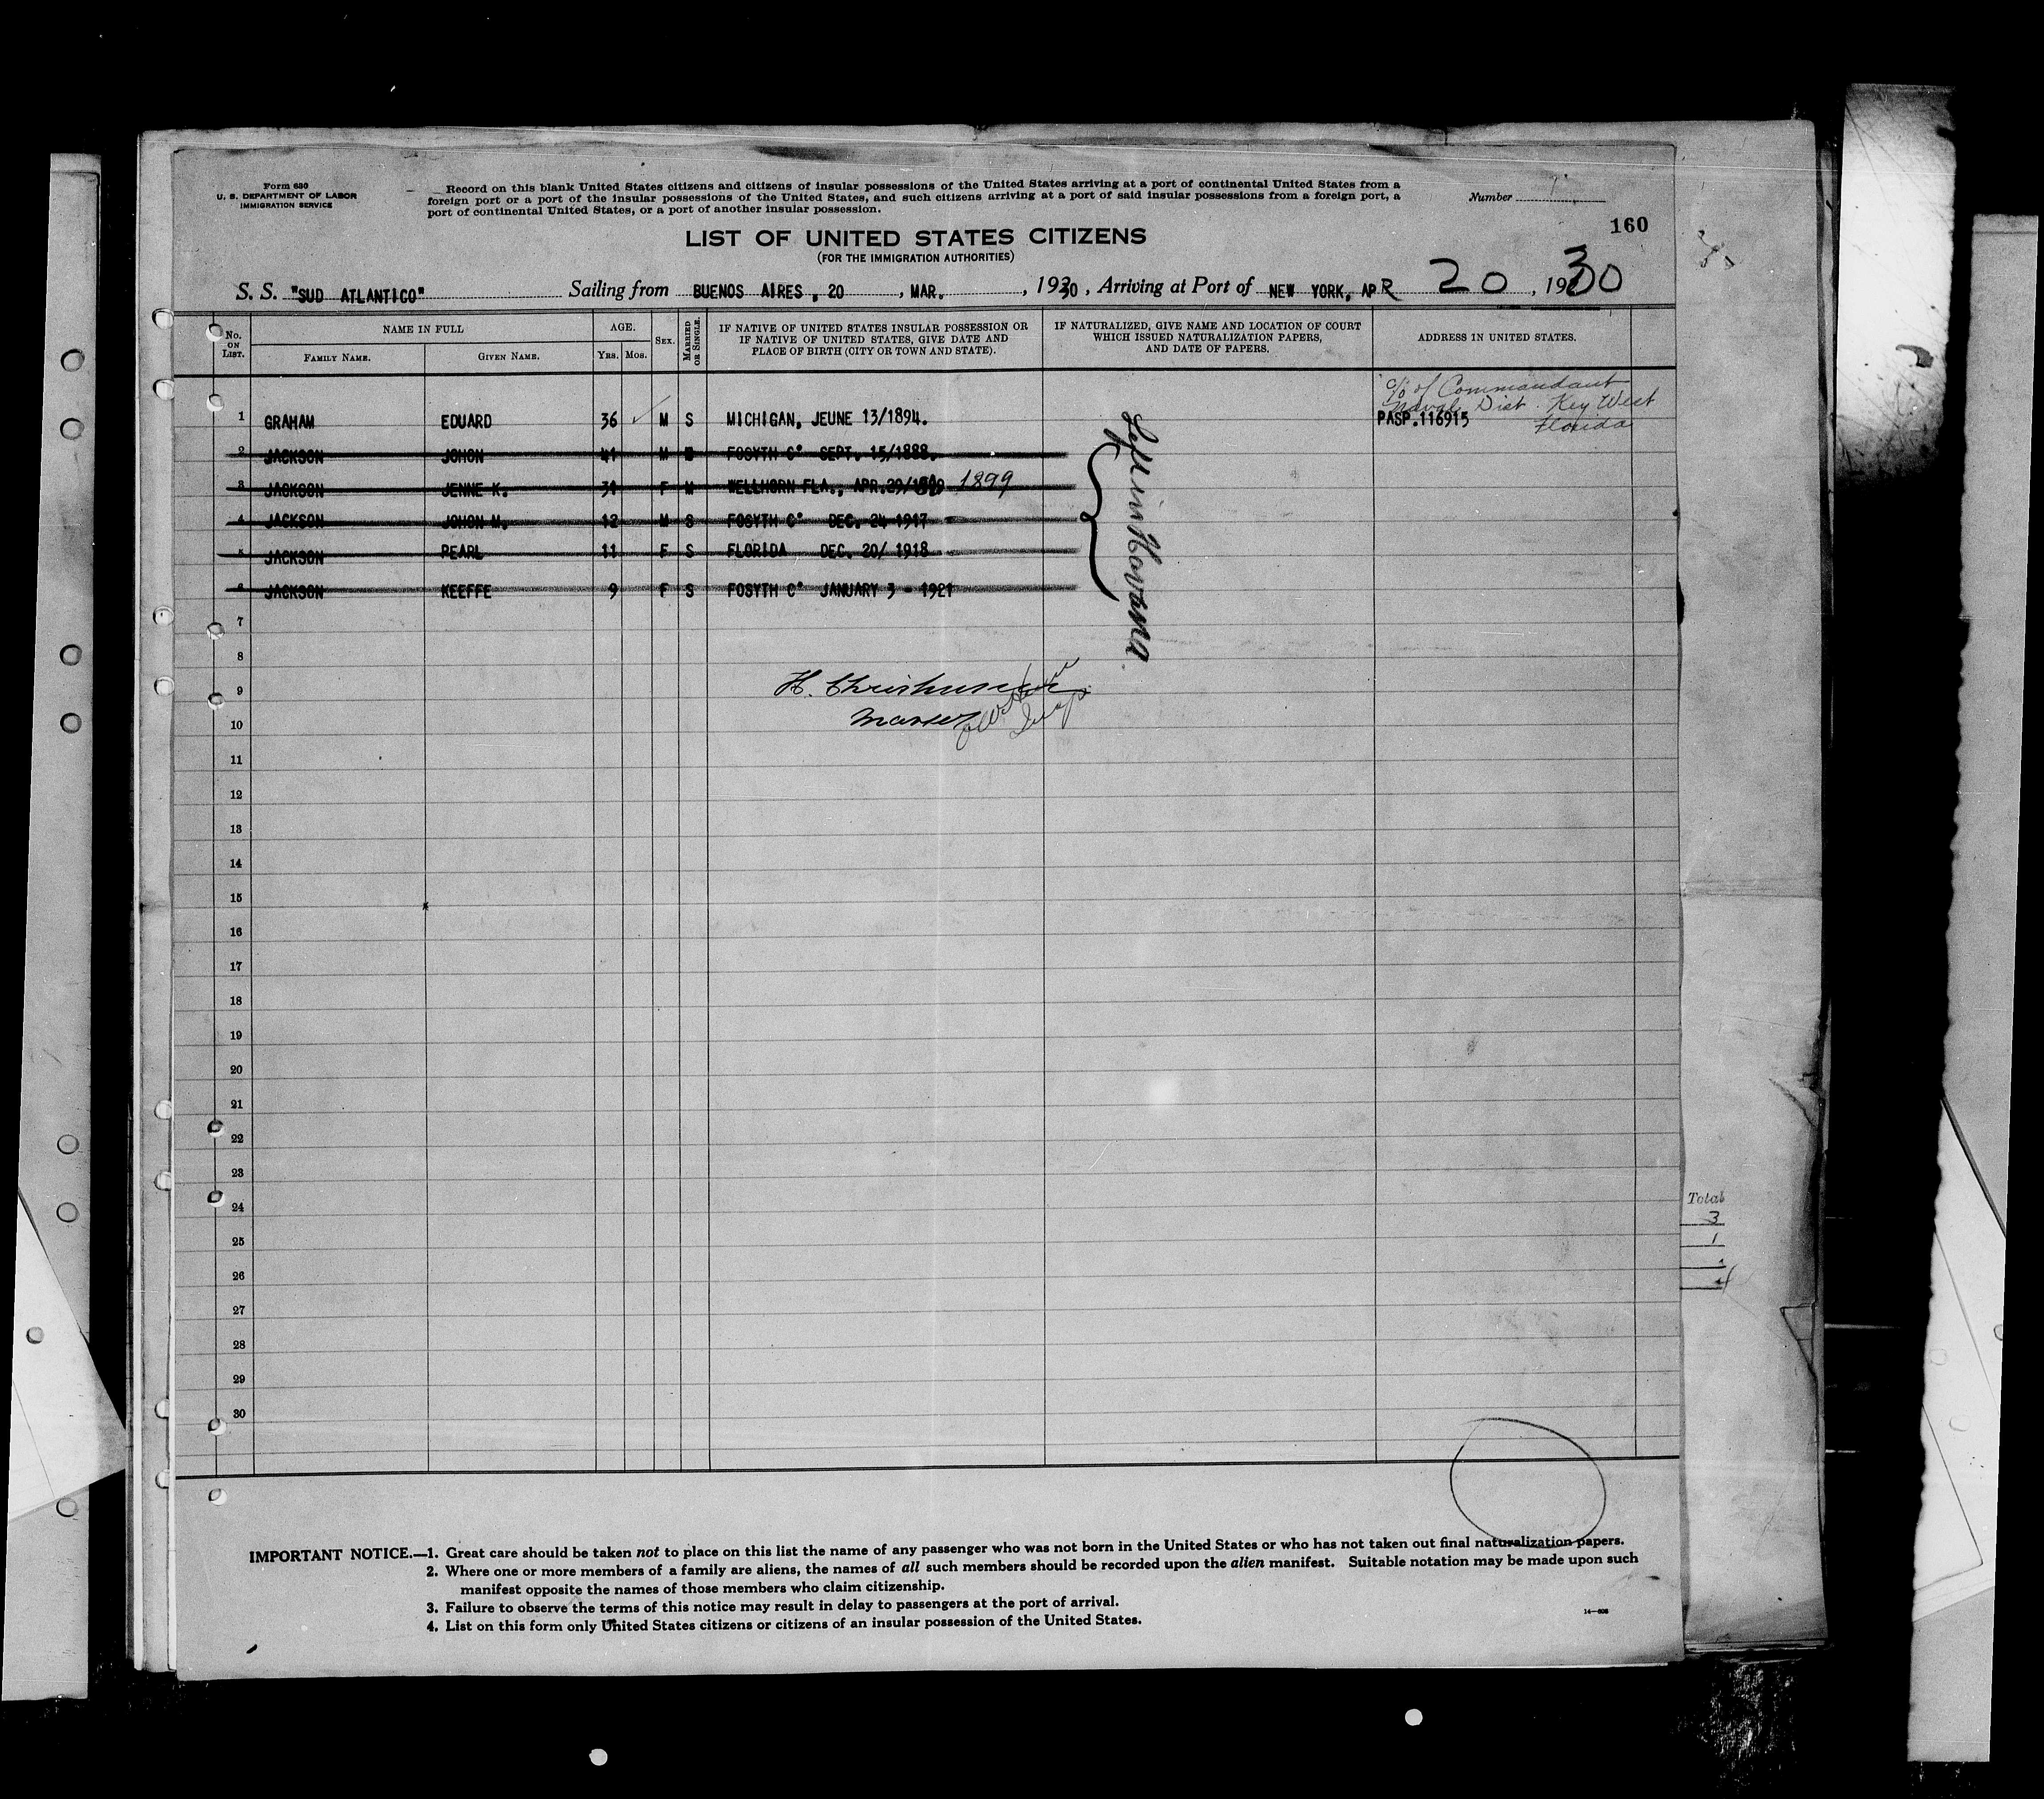 Form 630
U. S. DEPARTMENT OF LABOR
IMMIGRATION SERVICE
Record on this blank United States citizens and citizens of insular possessions of the United States arriving at a port of continental United States from a
foreign port or a port of the insular possessions of the United States, and such citizens arriving at a port of said insular possessions from a foreign port, a
port of continental United States, or a port of another insular possession.
Number
160
LIST OF UNITED STATES CITIZENS
(FOR THE IMMIGRATION AUTHORITIES)
S. S. "SUD ATLANTICO" Sailing from BUENOS AIRES, 20, MAR., 1930, Arriving at Port of NEW YORK, APR 20, 1930
No. ON LIST.
NAME IN FULL
FAMILY NAME. GIVEN NAME.
AGE.
YRS. MOS.
SEX.
MARRIED OR SINGLE.
IF NATIVE OF UNITED STATES INSULAR POSSESSION OR
IF NATIVE OF UNITED STATES, GIVE DATE AND
PLACE OF BIRTH (CITY OR TOWN AND STATE).
IF NATURALIZED, GIVE NAME AND LOCATION OF COURT
WHICH ISSUED NATURALIZATION PAPERS,
AND DATE OF PAPERS.
ADDRESS IN UNITED STATES.
c/o of Commandant
Naval Dist. Key West
Florida
1 GRAHAM EDUARD 36 M S MICHIGAN, JEUNE 13/1894. PASP.116915
2 JACKSON JOHON 41 M FOSYTH C° SEPT. 15/1888.
3 JACKSON JENNE K. 31 F M WELLHORN FLA., APR.29/ 1899
4 JACKSON JOHON M. 12 M S FOSYTH C° DEC. 24 1917
5 JACKSON PEARL 11 F S FLORIDA DEC. 20/ 1918
6 JACKSON KEEFFE 9 F S FOSYTH C° JANUARY 3 - 1921
Left in Havana
7
8
9
10
H.
Master
11
12
13
14
15
16
17
18
19
20
21
22
23
24
25
26
27
28
29
30
Total
3
1
4
IMPORTANT NOTICE.—1. Great care should be taken not to place on this list the name of any passenger who was not born in the United States or who has not taken out final naturalization papers.
2. Where one or more members of a family are aliens, the names of all such members should be recorded upon the alien manifest. Suitable notation may be made upon such
manifest opposite the names of those members who claim citizenship.
3. Failure to observe the terms of this notice may result in delay to passengers at the port of arrival.
4. List on this form only United States citizens or citizens of an insular possession of the United States.